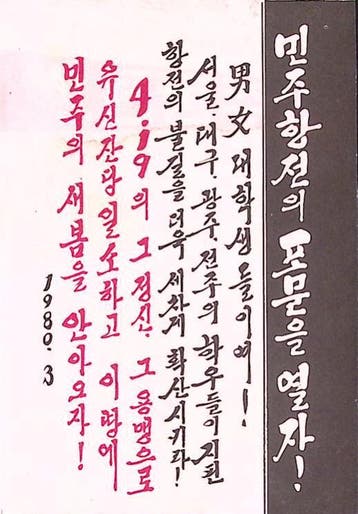 민주항전의 포문을 열자!
男女 대학생들이여!
서울, 대구, 광주, 전주의 학우들이 지핀
항전의 불길을 더욱 세차게 확산시키라!
4.19의 그 정신, 그 용맹으로
유신잔당 일소하고 이 땅에
민주의 새봄을 안아오자!
1980. 3